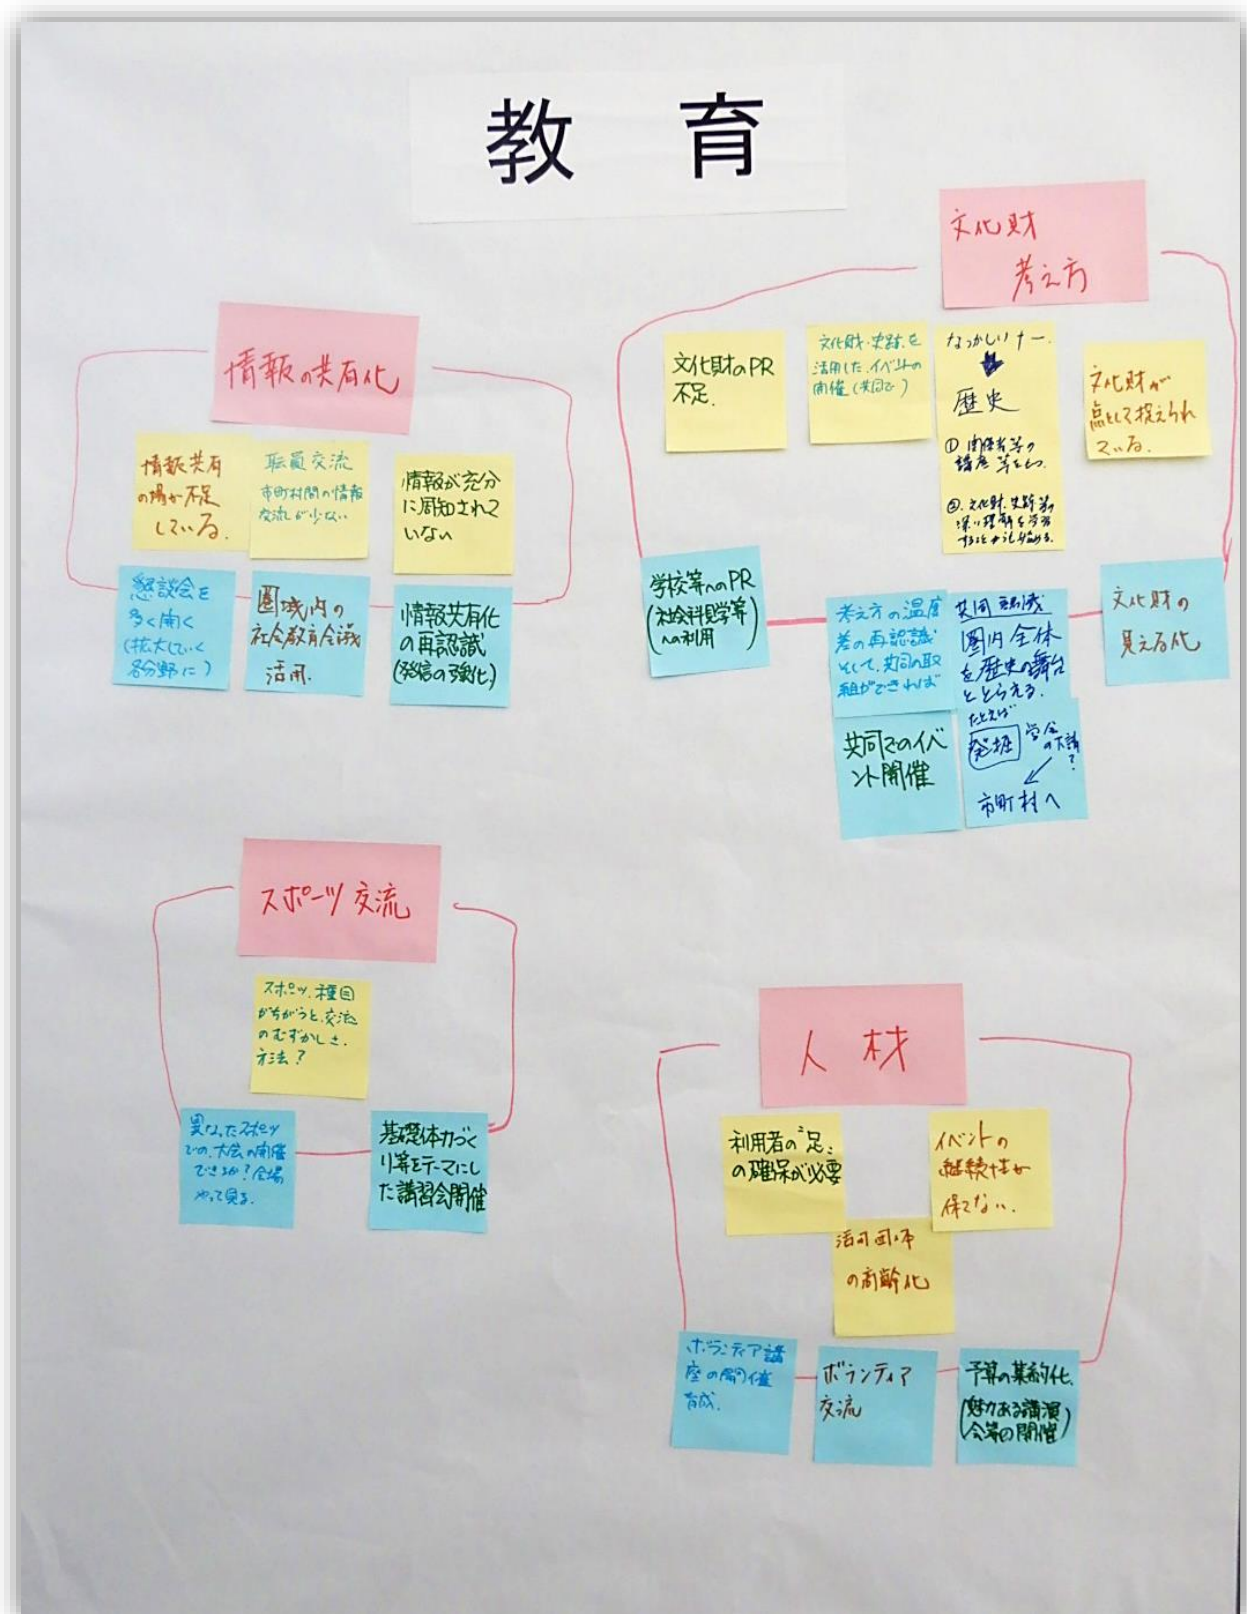 教 育
情報の共有化
情報共有
の場が不足
している。
職員交流
市町村間の情報
交流が少ない
情報が充分
に周知されて
いない
懇談会を
多く開く
(拡大していく
各分野に)
圏域内の
社会教育会議
活用.
情報共有化
の再認識
(発信の強化)
文化財
考え方
文化財のPR
不足.
文化財・史跡を
活用した、イベントの
開催(共同で)
なつかしいナー.
歴史
① 関係者等の
講座 等をもつ.
②. 文化財、史跡等の
深い理解を
文化財が
点として捉えられ
ている.
学校等へのPR
(社会科見学等
への利用)
考え方の温度
差の再認識
そして、共同の取
組ができれば
共同認識
圏内全体
を歴史の舞台
ととらえる.
文化財の
見える化
共同でのイベ
ント開催
たとえば
発掘
市町村へ
スポーツ交流
スポーツ、種目
がちがうと、交流
のむずかしさ.
方法?
異なったスポーツ
での、大会の開催
できるか?
やって見る.
基礎体力づく
り等をテーマにし
た講習会開催
人材
利用者の“足”
の確保が必要
イベントの
継続性が
保てない.
活動団体
の高齢化
ボランティア講
座の開催
育成.
ボランティア
交流
予算の集約化.
(魅力ある講演
会等の開催)